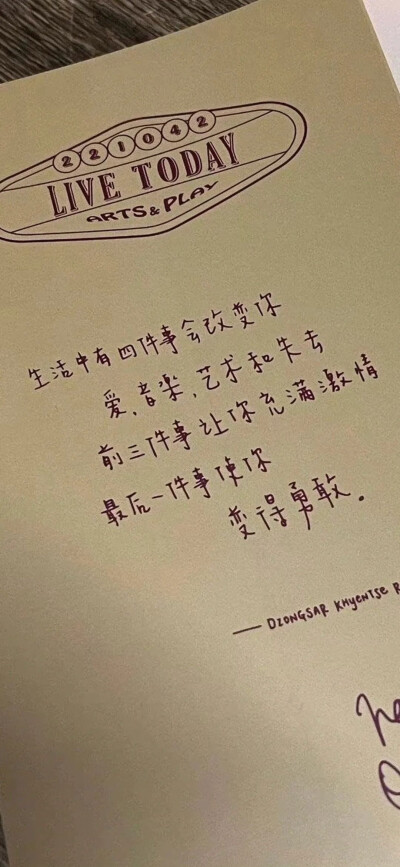 221042
LIVE TODAY
ARTS & PLAY
生活中有四件事会改变你
爱,音楽,艺术和失去
前三件事让你充满激情
最后一件事使你
变得勇敢。
— DZONGSAR KHYENTSE R